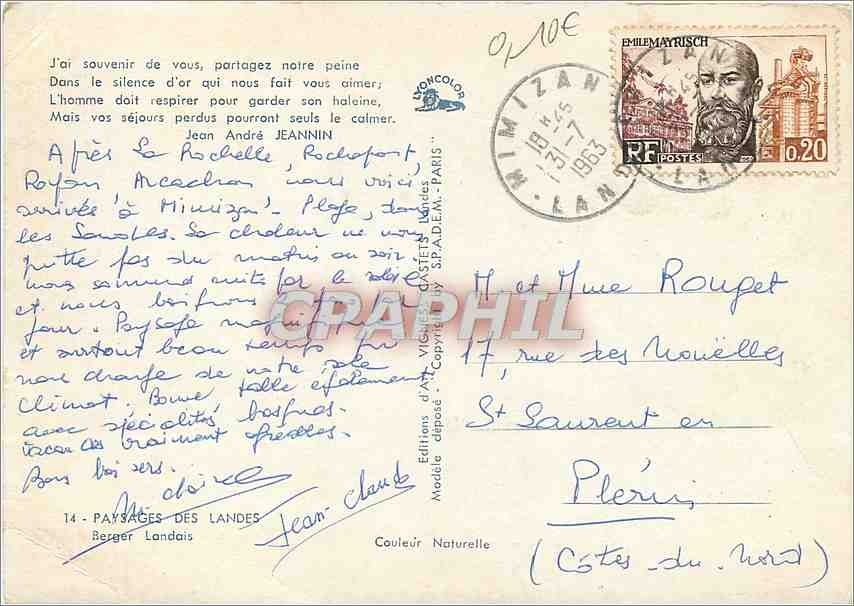 J'ai souvenir de vous, partagez notre peine
Dans le silence d'or qui nous fait vous aimer;
L'homme doit respirer pour garder son haleine,
Mais vos séjours perdus pourront seuls le calmer.
Jean André JEANNIN
LYONCOLOR
0,10€
EMILE MAYRISCH
RF POSTES 0.20
MIMIZAN
18 H 45
31-7
1963
LANDES
Après La Rochelle, Rochefort,
Royan, Arcachon nous voici
arrivés à Mimizan-Plage, dans
les Landes. La chaleur ne nous
quitte pas du matin au soir:
nous sommes cuits par le soleil
et nous
jour. Paysage magnifique
et surtout beau temps
nous change de notre sale
climat. Bonne table également
avec spécialités basques.
Vacances vraiment agréables.
Bons baisers.
Jean-Claude
14 - PAYSAGES DES LANDES
Berger Landais
Couleur Naturelle
Editions d'Art VIGNES, CASTETS Landes
Modèle déposé - Copyright by S.P.A.D.E.M. - PARIS
CRAPHIL
M. et Mme Rouget
17, rue des Nouëlles
St Laurent en
Plérin
(Côtes-du-Nord)